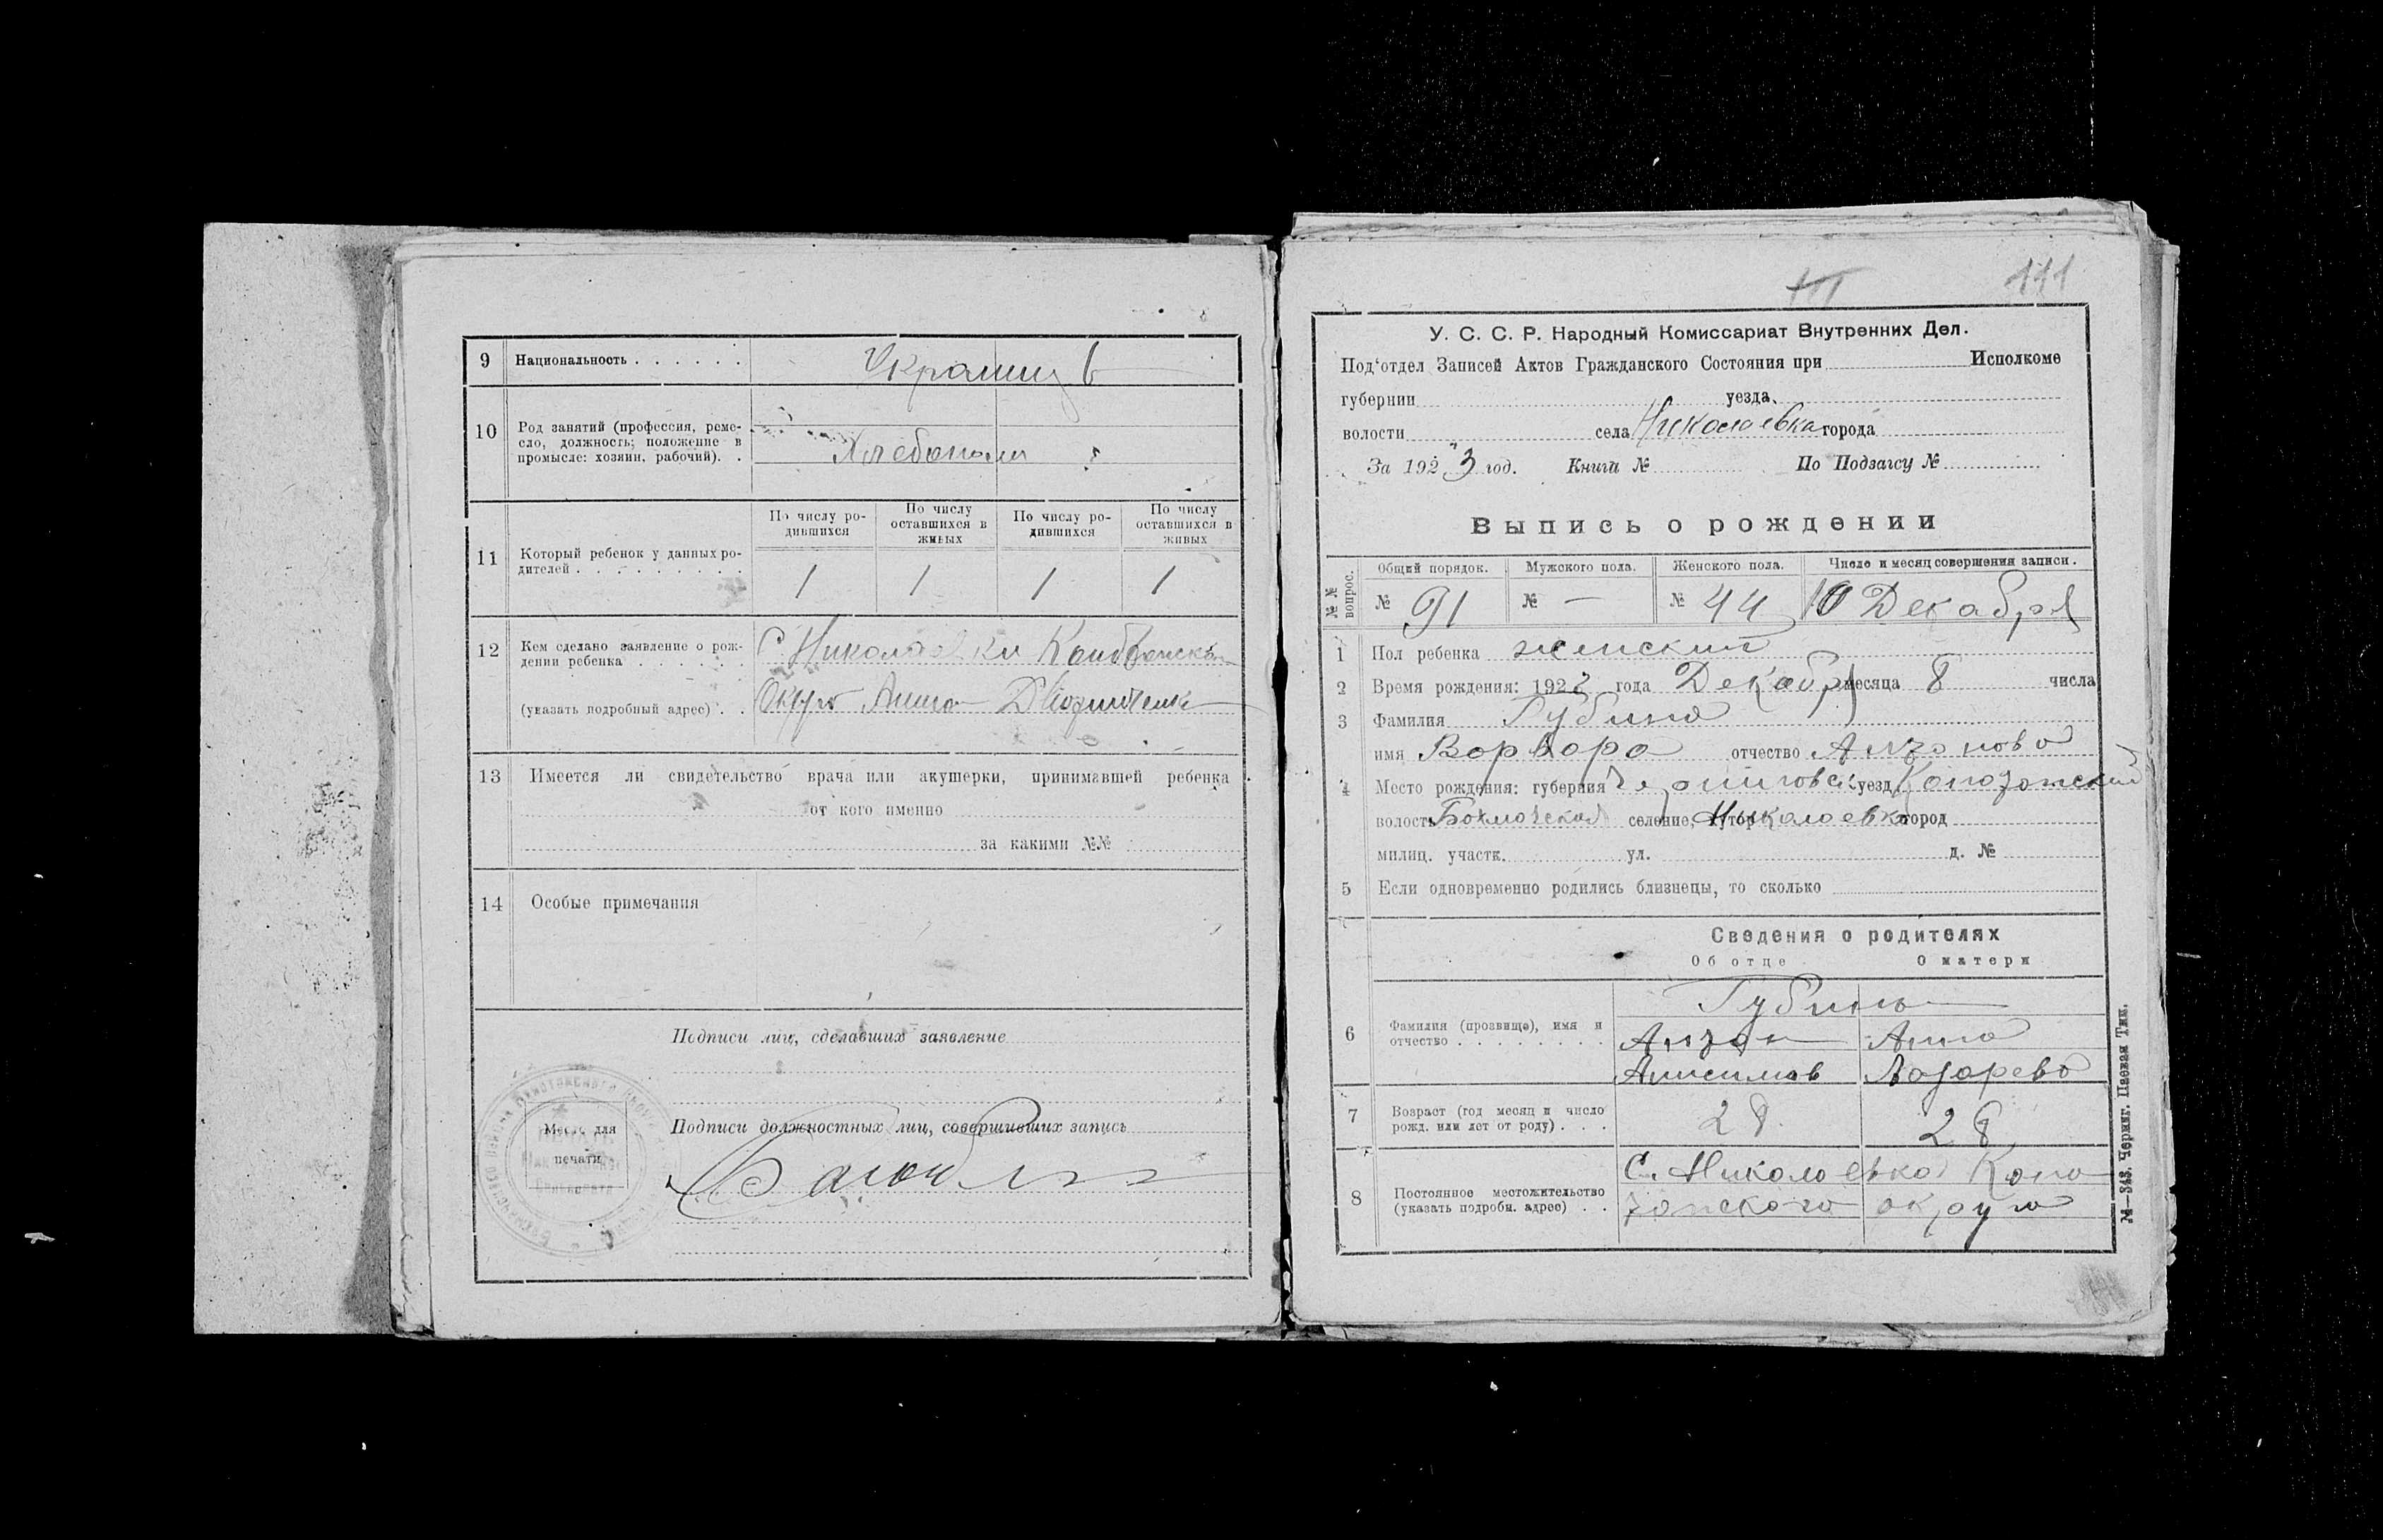 9 Национальность . . . . . . Украинцѣ
10 Род занятий (профессия, реме-
сло, должность; положение в
промысле: хозяин, рабочий). .
Хлебопаш
По числу ро-
дившихся
По числу
оставшихся в
живых
По числу ро-
дившихся
По числу
оставшихся в
живых
11 Который ребенок у данных ро-
дителей . . . . . . . . . 1 1 1 1
12 Кем сделано заявление о рож-
дении ребенка . . . . . . С Николаевки
(указать подробный адрес) . . Анна
13 Имеется ли свидетельство врача или акушерки, принимавшей ребенка
от кого именно
за какими №№
14 Особые примечания
Подписи лиц, сделавших заявление
Подписи должностных лиц, совершивших запись
Место для
печати
111
У. С. С. Р. Народный Комиссариат Внутренних Дел.
Под'отдел Записей Актов Гражданского Состояния при Исполкоме
губернии уезда
волости села Николаевка города
За 1923 год. Книга № По Подзагсу №
Выпись о рождении
№№ вопрос.
Общий порядок. Мужского пола. Женского пола. Число и месяц совершения записи.
№ 91 № — № 44 10 Декабря
1 Пол ребенка женский
2 Время рождения: 192 года Декабря месяца 8 числа
3 Фамилия Губина
имя Варвара отчество Антонова
4 Место рождения: губерния Черниговс. уезд Конотопский
волость Бахмачская селение, хутор Николаевка город
милиц. участк. ул. д. №
5 Если одновременно родились близнецы, то сколько
Сведения о родителях
Об отце О матери
Губины
6 Фамилия (прозвище), имя и
отчество . . . . . . . .
Антон Анна
Анисимов Лазарева
7 Возраст (год месяц и число
рожд. или лет от роду) . . .
28 28
8 Постоянное местожительство
(указать подробн. адрес) . .
С. Николаевка Коно
топского округа
№—343. Черниг. Паевая Тип.